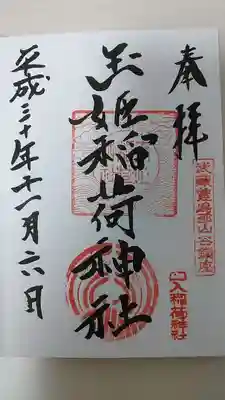 奉拝
玉姫稲荷神社
平成三十年十一月六日
口入稲荷神社